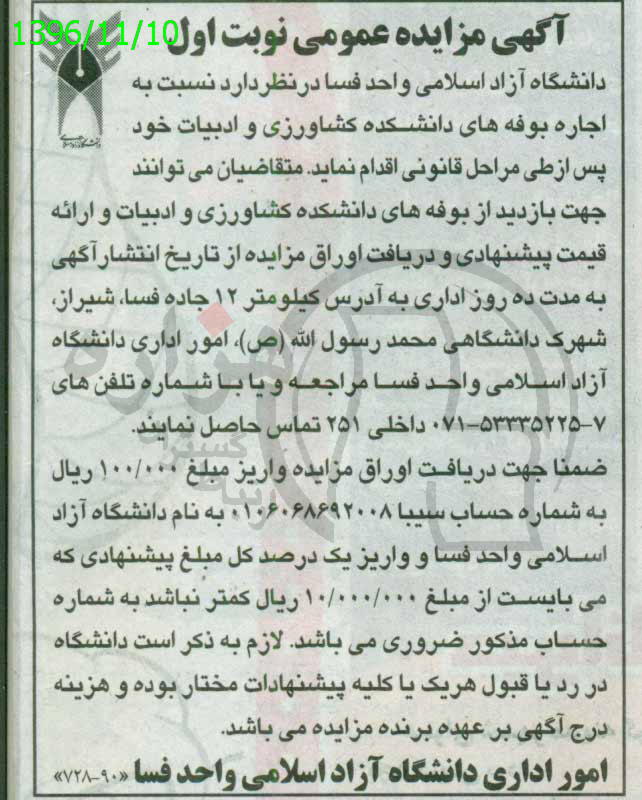 1396/11/10
آگهی مزایده عمومی نوبت اول
دانشگاه آزاد اسلامی واحد فسا در نظر دارد نسبت به
اجاره بوفه های دانشکده کشاورزی و ادبیات خود
پس از طی مراحل قانونی اقدام نماید. متقاضیان می توانند
جهت بازدید از بوفه های دانشکده کشاورزی و ادبیات و ارائه
قیمت پیشنهادی و دریافت اوراق مزایده از تاریخ انتشار آگهی
به مدت ده روز اداری به آدرس کیلومتر ۱۲ جاده فسا، شیراز،
شهرک دانشگاهی محمد رسول الله (ص)، امور اداری دانشگاه
آزاد اسلامی واحد فسا مراجعه و یا با شماره تلفن های
۷-۵۳۳۳۵۲۲۵-۰۷۱ داخلی ۲۵۱ تماس حاصل نمایند.
ضمنا جهت دریافت اوراق مزایده واریز مبلغ ۱۰۰/۰۰۰ ریال
به شماره حساب سیبا ۰۱۰۶۰۶۸۶۹۲۰۰۸ به نام دانشگاه آزاد
اسلامی واحد فسا و واریز یک درصد کل مبلغ پیشنهادی که
می بایست از مبلغ ۱۰/۰۰۰/۰۰۰ ریال کمتر نباشد به شماره
حساب مذکور ضروری می باشد. لازم به ذکر است دانشگاه
در رد یا قبول هریک یا کلیه پیشنهادات مختار بوده و هزینه
درج آگهی بر عهده برنده مزایده می باشد.
امور اداری دانشگاه آزاد اسلامی واحد فسا «۹۰-۷۲۸»
هزاره